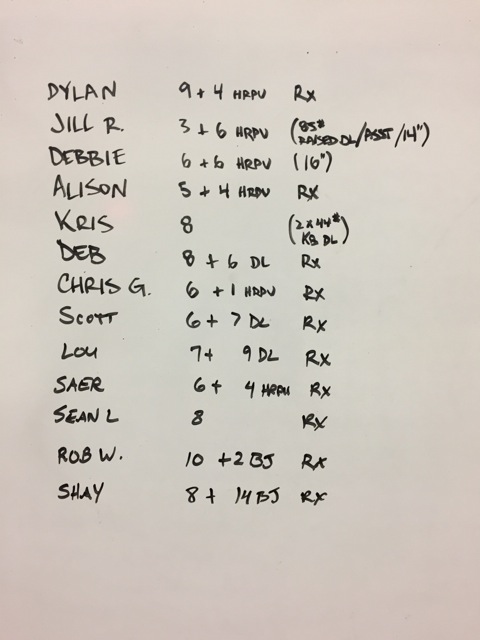 DYLAN 9 + 4 HRPU Rx
JILL R. 3 + 6 HRPU (85# RAISED DL/ASST/14")
DEBBIE 6 + 6 HRPU (16")
ALISON 5 + 4 HRPU RX
KRIS 8 (2x44# KB DL)
DEB 8 + 6 DL Rx
CHRIS G. 6 + 1 HRPU Rx
SCOTT 6 + 7 DL Rx
LOU 7+ 9 DL Rx
SAER 6 + 4 HRPU Rx
SEAN L 8 Rx
ROB W. 10 +2 BJ Rx
SHAY 8 + 14 BJ Rx